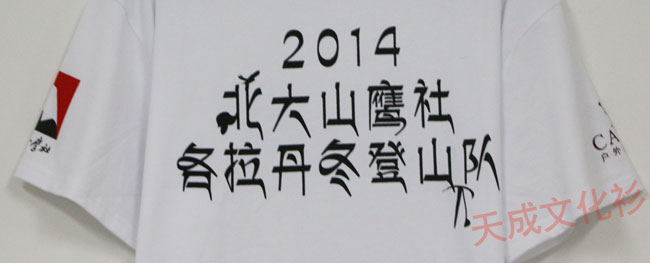 2014
北大山鹰社
各拉丹冬登山队
CA
户外
天成文化衫